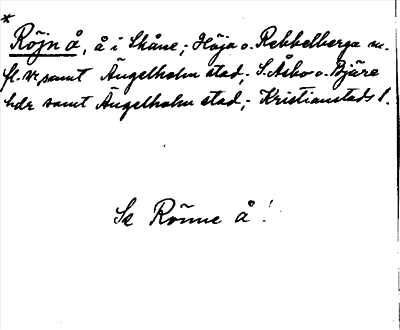 *
Röjn å, å i Skåne; Höja o. Rebbelberga m.
fl. vr samt Ängelholm stad; S. Åsbo o. Bjäre
hdr samt Ängelholm stad; Kristianstads l.
Se Rönne å!